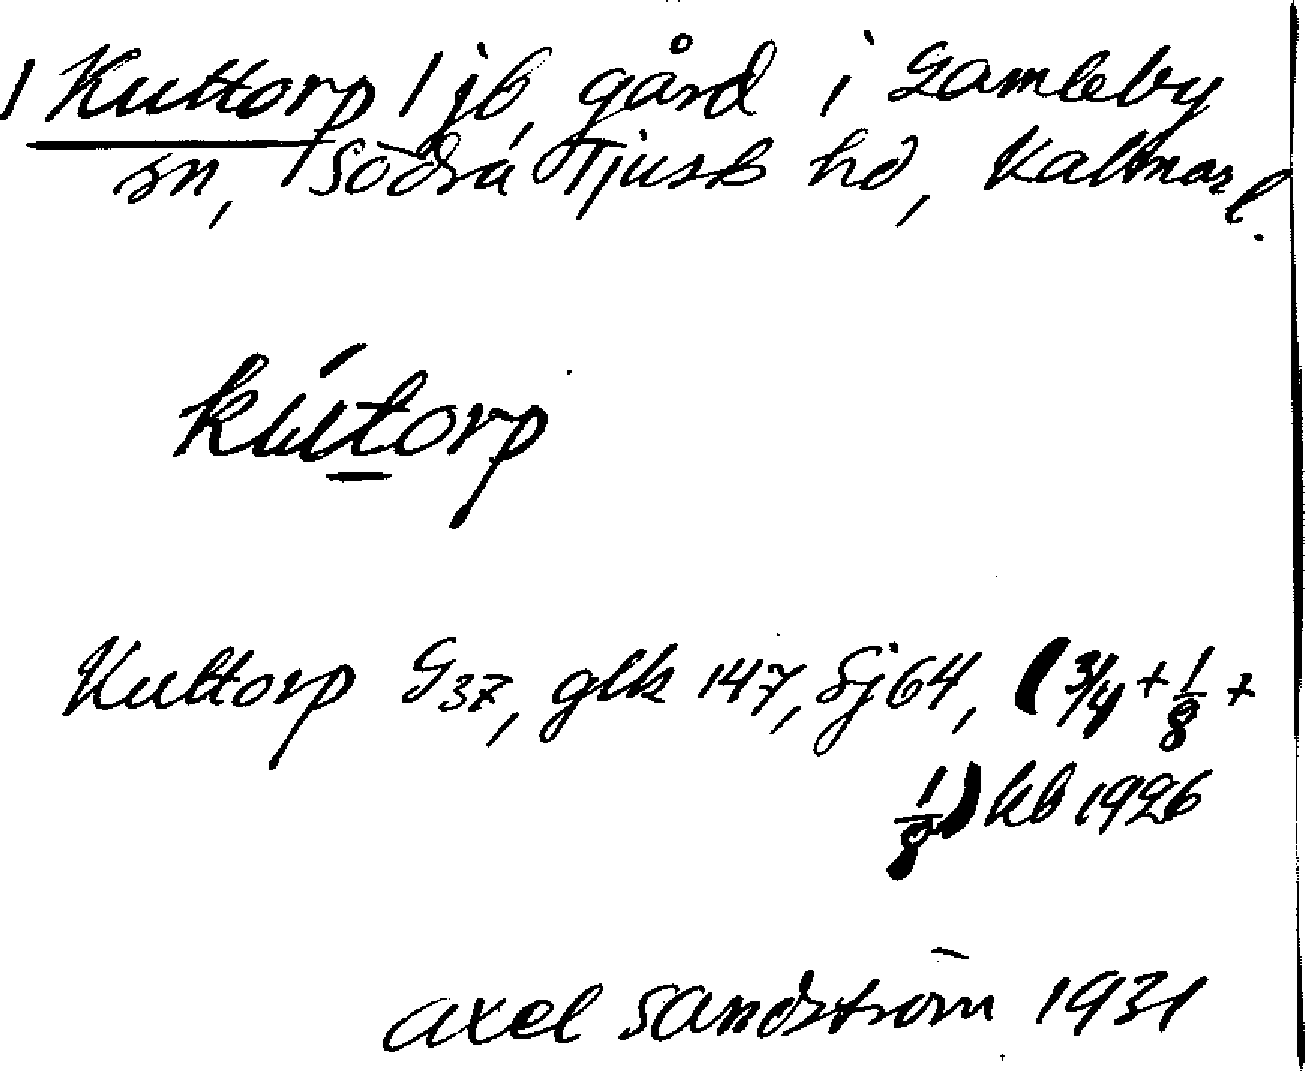 1 Kuttorp 1 jb, gård i Gamleby
sn, Södra Tjusts hd, Kalmar l.
kútorp
Kuttorp G37, glk 147, Sj 64, (3/4 + 1/8 +
1/8) kb 1926
axel sandström 1931